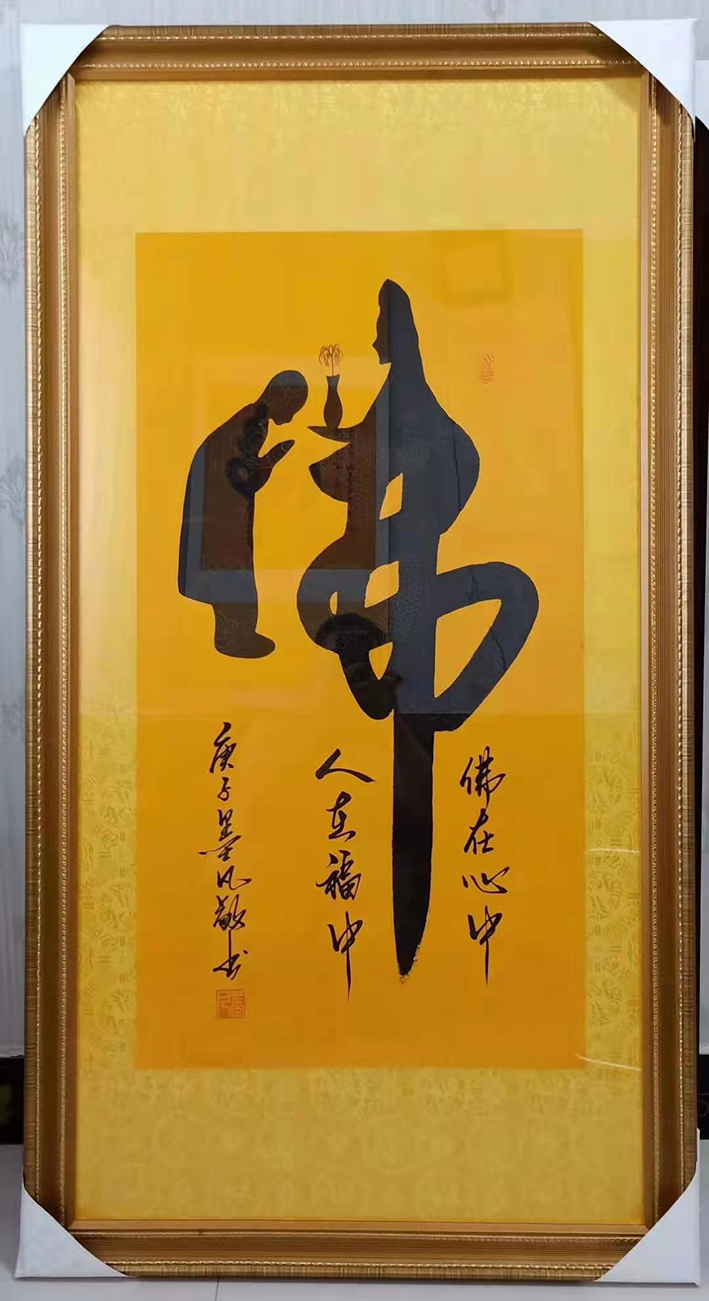 佛
佛在心中
人在福中
庚子墨凡敬书